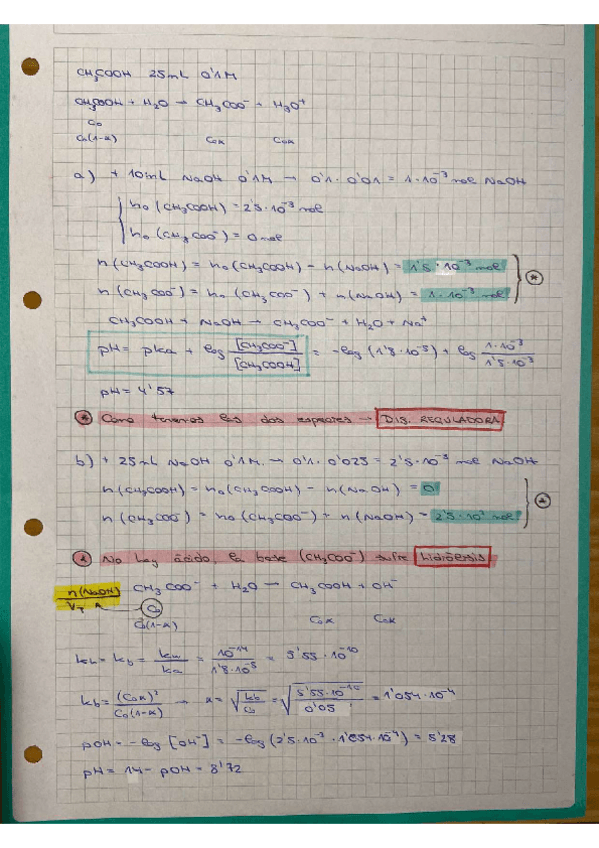 CH₃COOH 25mL 0'1M
CH₃COOH + H₂O → CH₃COO⁻ + H₃O⁺
C₀
C₀(1-α) C₀α C₀α
a) + 10mL NaOH 0'1M → 0'1 · 0'01 = 1·10⁻³ mol NaOH
n₀(CH₃COOH) = 2'5·10⁻³ mol
n₀(CH₃COO⁻) = 0 mol
n(CH₃COOH) = n₀(CH₃COOH) - n(NaOH) = 1'5·10⁻³ mol
n(CH₃COO⁻) = n₀(CH₃COO⁻) + n(NaOH) = 1·10⁻³ mol
CH₃COOH + NaOH → CH₃COO⁻ + H₂O + Na⁺
pH = pKa + log [CH₃COO⁻]/[CH₃COOH] = -log(1'8·10⁻⁵) + log 1·10⁻³/1'5·10⁻³
pH = 4'57
* Como tenemos las dos especies → DIS. REGULADORA
b) + 25mL NaOH 0'1M → 0'1 · 0'025 = 2'5·10⁻³ mol NaOH
n(CH₃COOH) = n₀(CH₃COOH) - n(NaOH) = 0
n(CH₃COO⁻) = n₀(CH₃COO⁻) + n(NaOH) = 2'5·10⁻³ mol
* No hay ácido, la base (CH₃COO⁻) sufre hidrólisis
n(NaOH)/V_T CH₃COO⁻ + H₂O → CH₃COOH + OH⁻
C₀
C₀(1-α) C₀α C₀α
Kh = Kb = Kw/Ka = 10⁻¹⁴/1'8·10⁻⁵ = 5'55·10⁻¹⁰
Kb = (C₀α)²/C₀(1-α) → α = √(Kb/C₀) = √(5'55·10⁻¹⁰/0'05) = 1'054·10⁻⁴
pOH = -log [OH⁻] = -log(2'5·10⁻³ · 1'054·10⁻⁴) = 5'28
pH = 14 - pOH = 8'72